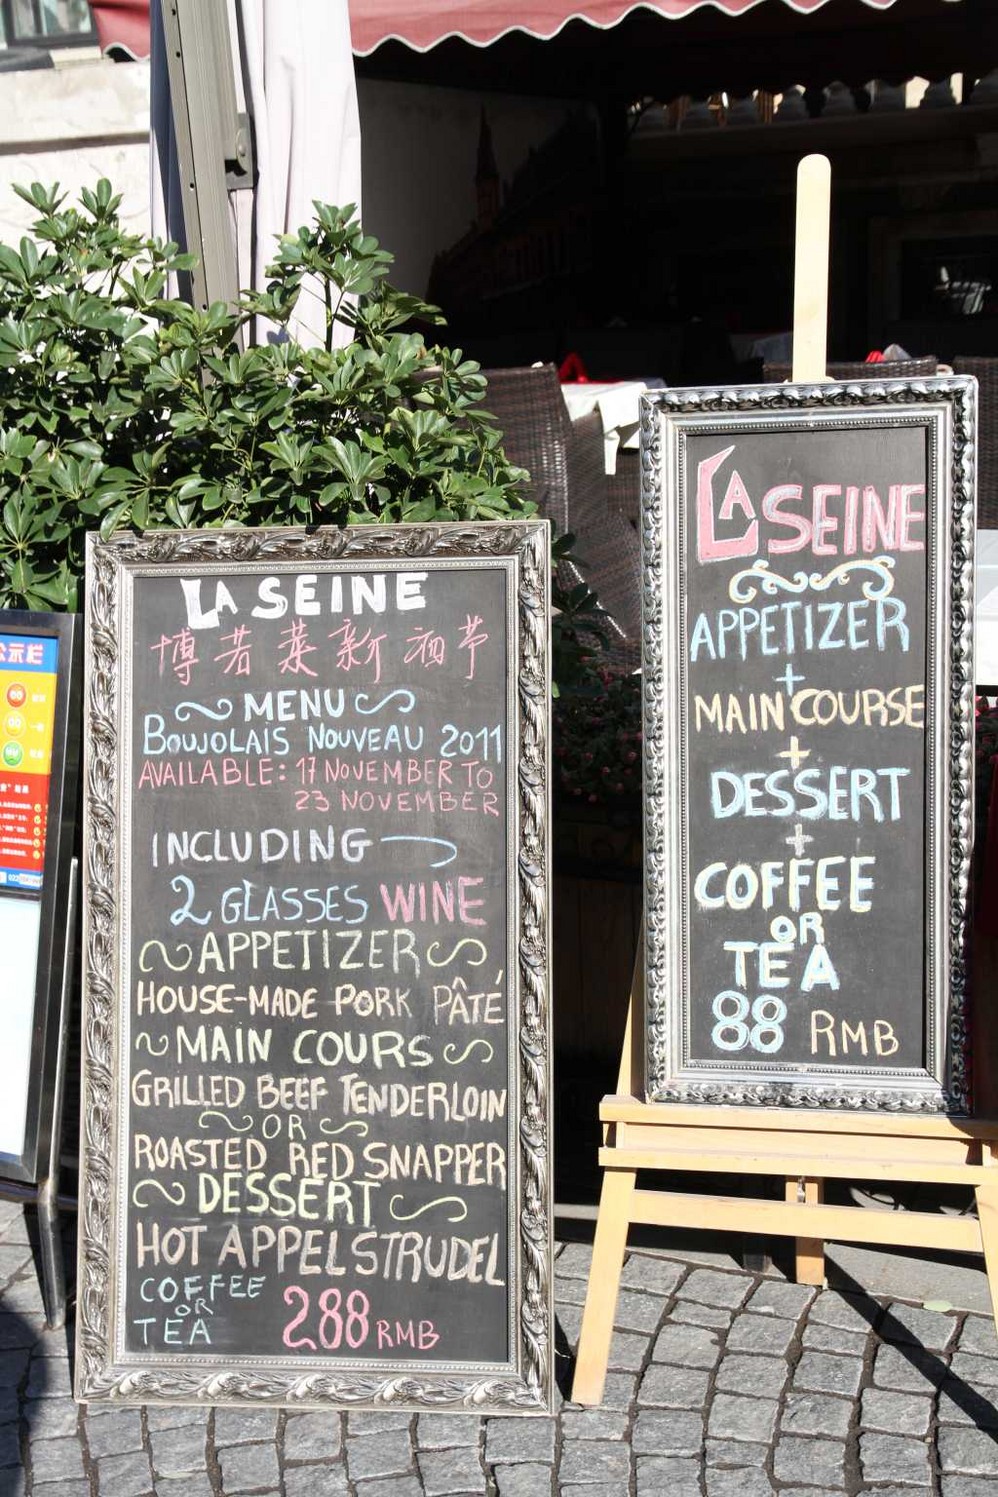 LA SEINE
博若莱新酒节
MENU
BOUJOLAIS NOUVEAU 2011
AVAILABLE: 17 NOVEMBER TO
23 NOVEMBER
INCLUDING
2 GLASSES WINE
APPETIZER
HOUSE-MADE PORK PÂTÉ
MAIN COURS
GRILLED BEEF TENDERLOIN
OR
ROASTED RED SNAPPER
DESSERT
HOT APPELSTRUDEL
COFFEE
OR
TEA
288 RMB
LA SEINE
APPETIZER
+
MAIN COURSE
+
DESSERT
+
COFFEE
OR
TEA
88 RMB
公示栏